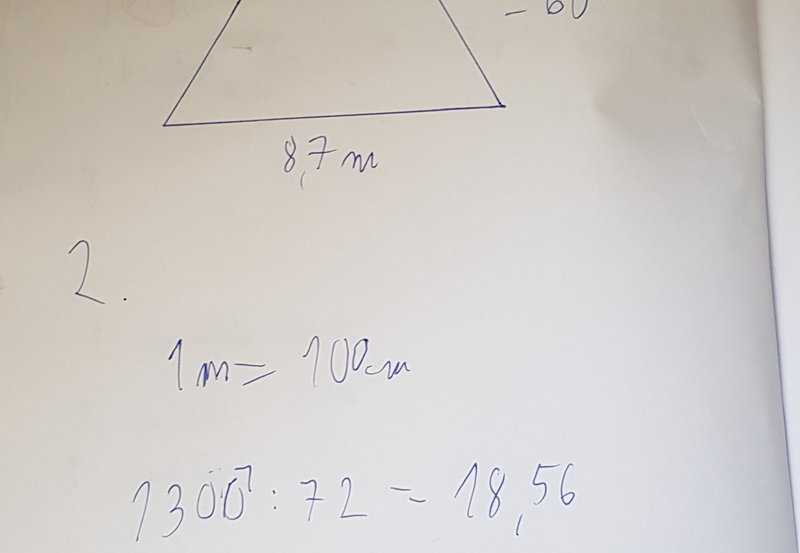 - 60
8,7 m
2.
1 m = 100 cm
1300 : 72 = 18,56